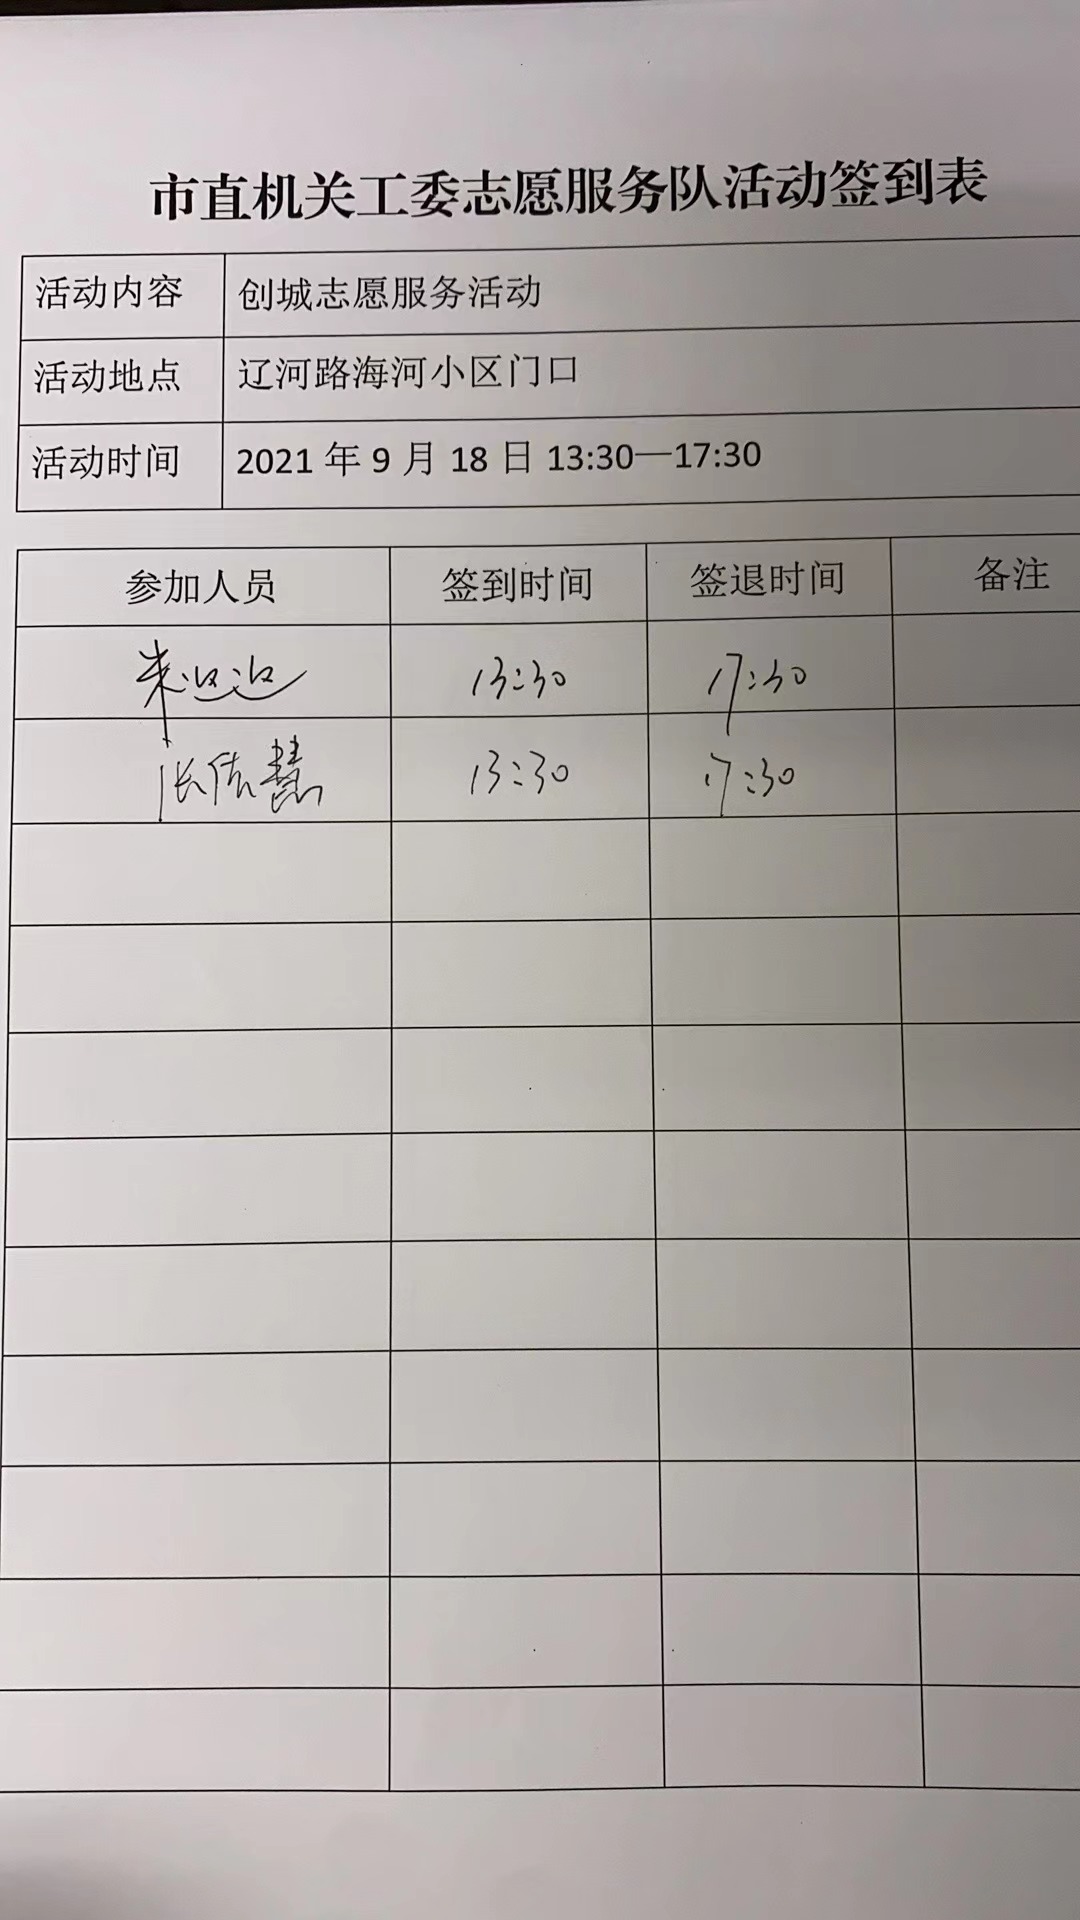 市直机关工委志愿服务队活动签到表
活动内容 创城志愿服务活动
活动地点 辽河路海河小区门口
活动时间 2021年9月18日13:30—17:30
参加人员 签到时间 签退时间 备注
朱迢迢 13:30 17:30
张佶慧 13:30 17:30